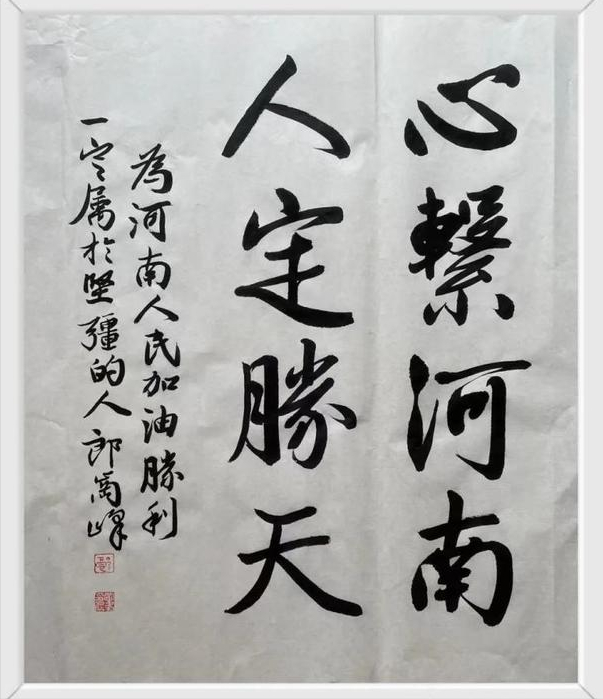 心繫河南
人定勝天
為河南人民加油勝利
一定属於堅彊的人郎高峰